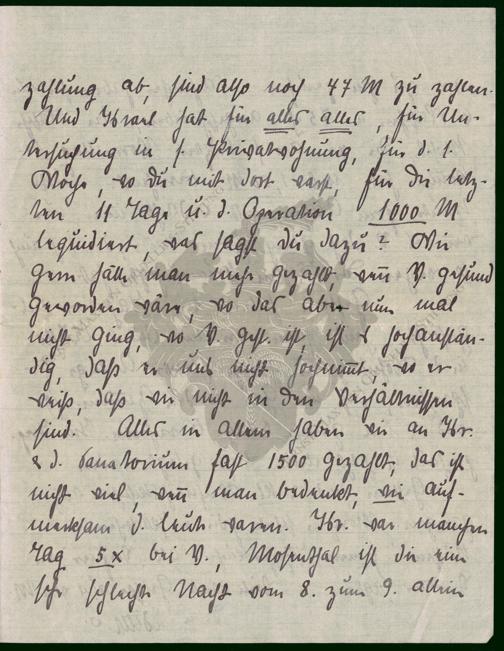 zahlung ab, sind also noch 47 M zu zahlen.
Und Israel hat für alles alles, für Un-
tersuchung in s. Privatwohnung, für d. 1.
Woche, wo du mit dort warst, für die letz-
ten 11 Tage u. d. Operation 1000 M
liquidiert, was sagst du dazu? Wie
gern hätte man mehr gezahlt, wenn V. gesund
geworden wäre, wo das aber nun mal
nicht ging, wo V. gest. ist, ist es hochanstän-
dig, daß er uns nicht hochnimmt, wo er
weiß, daß wir nicht in den Verhältnissen
sind. Alles in allem haben wir an Isr.
& d. Sanatorium fast 1500 gezahlt, das ist
nicht viel, wenn man bedenkt, wie auf-
merksam d. Leute waren. Isr. war manchen
Tag 5x bei V., Mosenthal ist die eine
sehr schlechte Nacht vom 8. zum 9. allein